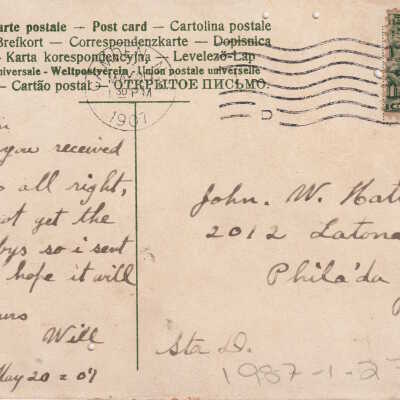 arte postale – Post card – Cartolina postale
Brefkort – Correspondenzkarte – Dopisnica
– Karta korespondencyjna – Levelező-Lap
universale – Weltpostverein – Union postale universelle
– Cartão postal – ОТКРЫТОЕ ПИСЬМО.
30 PM
1907
D
you received
all right,
not get the
so i sent
hope it will
Will
May 20 = 07
John. W. Hat
2012 Latona
Phila'da
Sta D.
1987-1-2